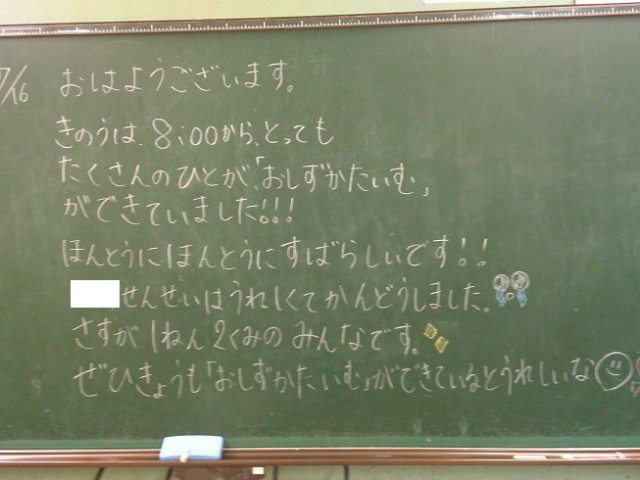 7/16 おはようございます。
きのうは、8:00から、とっても
たくさんのひとが、「おしずかたいむ」
ができていました!!!
ほんとうにほんとうにすばらしいです!!
せんせいはうれしくてかんどうしました。
さすが1ねん2くみのみんなです。
ぜひきょうも「おしずかたいむ」ができているとうれしいな